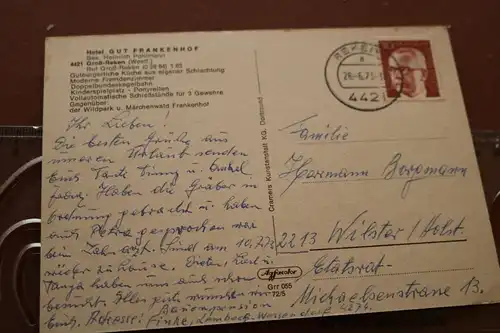 Hotel GUT FRANKENHOF
Bes. Heinrich Pohlmann
4421 Groß-Reken (Westf.)
Ruf Groß-Reken (0 28 64) 1 83
Gutbürgerliche Küche aus eigener Schlachtung
Moderne Fremdenzimmer
Doppelbundeskegelbahn
Kinderspielplatz - Ponyreiten
Vollautomatische Schießstände für 3 Gewehre
Gegenüber:
der Wildpark u. Märchenwald Frankenhof
Ihr Lieben!
Die besten Grüße aus
unserem Urlaub senden
Euch Tante und Onkel
Haben die Gräber in
Ordnung gebracht u. haben
auch Petra gesprochen war
beim Zahnarzt. Sind am 10.7.
wieder zu Hause. Dieter,
Tanja haben uns auch schon
besucht. Alles gute wünschen wir
Euch. Adresse: Pension
Finke, Lembeck-Wessendorf 4274
Cramers Kunstanstalt KG, Dortmund
REKEN
a
4421
Familie
Hermann Borgmann
2213 Wilster/Holst.
Etatsrat-
Michaelsenstrasse 13.
Grr 055
72/5